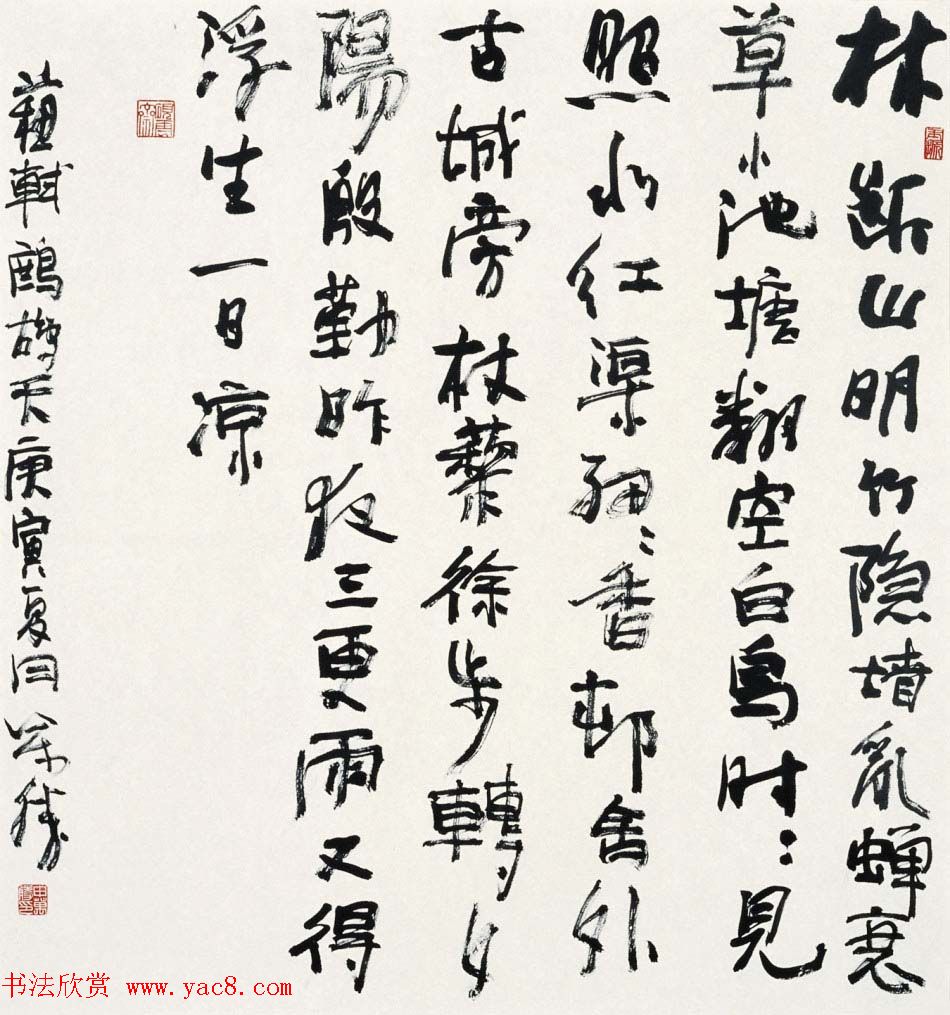 林断山明竹隐墙乱蝉衰
草小池塘翻空白鸟时:见
照水红渠细:香邨舍外
古城旁杖藜徐步轉夕
陽殷勤昨夜三更雨又得
浮生一日凉
蘇軾鷓鴣天庚寅夏日
书法欣赏 www.yac8.com